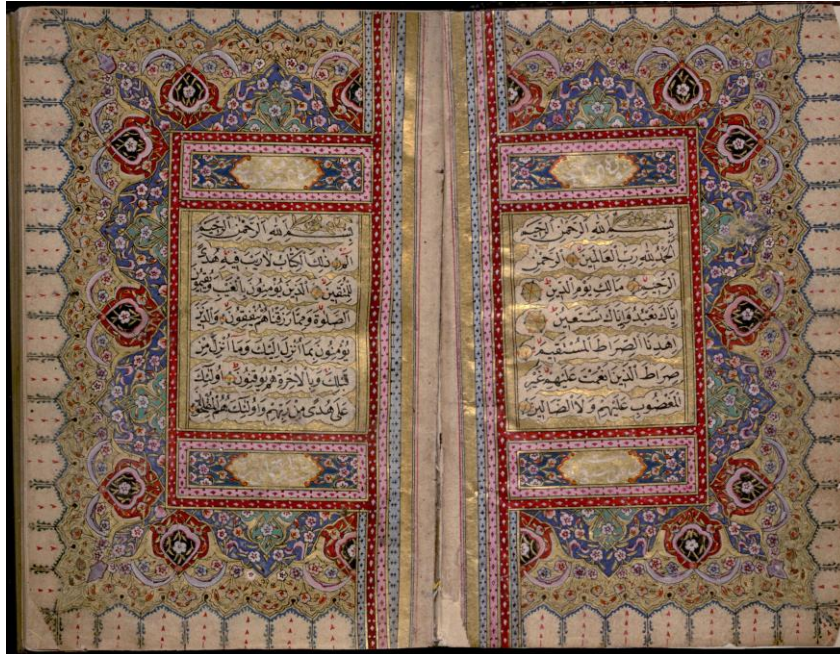 بسم الله الرحمن الرحيم
الحمد لله رب العالمين الرحمن
الرحيم مالك يوم الدين
اياك نعبد واياك نستعين
اهدنا الصراط المستقيم
صراط الذين انعمت عليهم غير
المغضوب عليهم ولا الضالين
بسم الله الرحمن الرحيم
الم ذلك الكتاب لا ريب فيه هدى
للمتقين الذين يؤمنون بالغيب ويقيمون
الصلوة ومما رزقناهم ينفقون والذين
يؤمنون بما انزل اليك وما انزل من
قبلك وبالاخرة هم يوقنون اولئك
على هدى من ربهم واولئك هم المفلحون